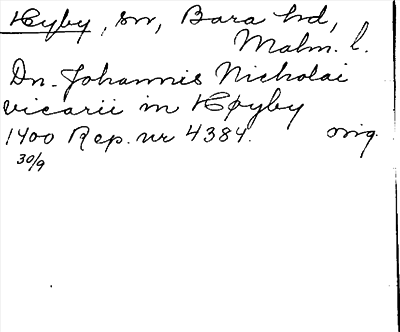 Hyby, sn, Bara hd,
Malm. l.
Dn. Johannis Nicholai
vicarii in Høyby
1400 Rep. nr 4384. orig.
30/9